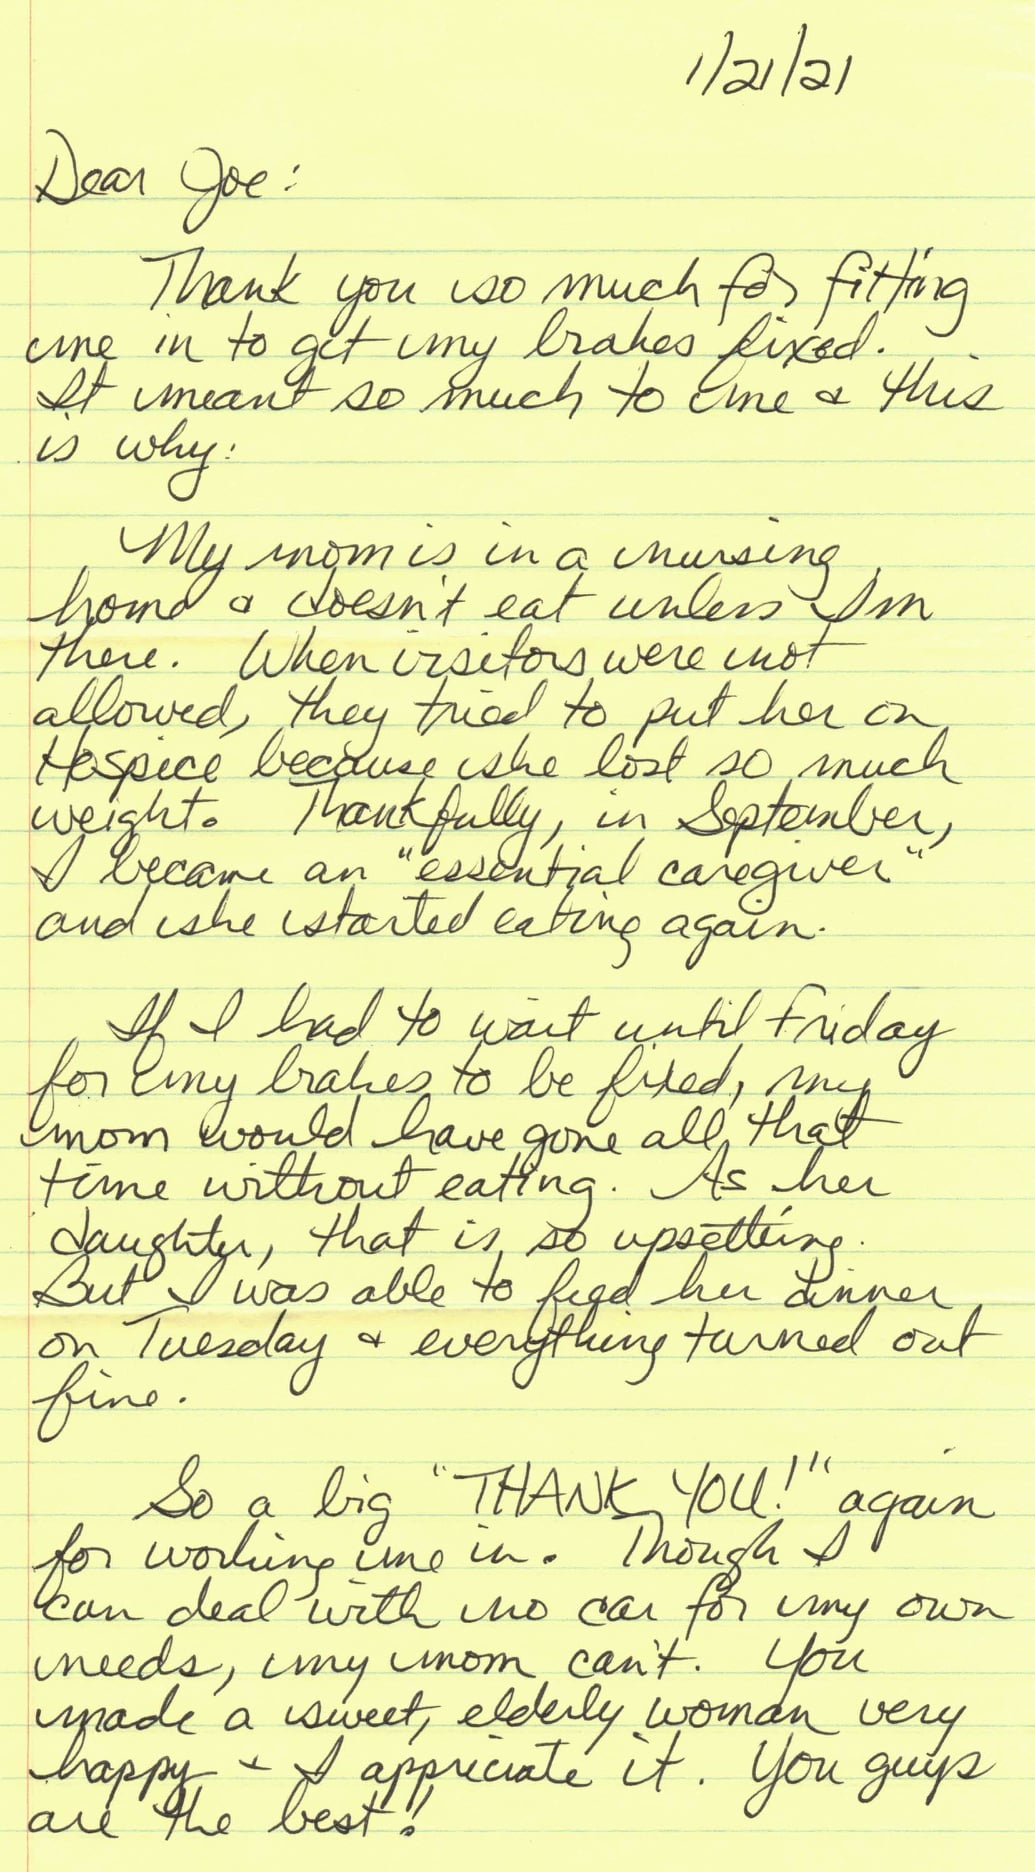 1/21/21
Dear Joe:
Thank you so much for fitting
me in to get my brakes fixed.
It meant so much to me & this
is why:
My mom is in a nursing
home & doesn't eat unless I'm
there. When visitors were not
allowed, they tried to put her on
Hospice because she lost so much
weight. Thankfully, in September,
I became an "essential caregiver"
and she started eating again.
If I had to wait until Friday
for my brakes to be fixed, my
mom would have gone all that
time without eating. As her
daughter, that is so upsetting.
But I was able to feed her dinner
on Tuesday & everything turned out
fine.
So a big "THANK YOU!" again
for working me in. Though I
can deal with no car for my own
needs, my mom can't. You
made a sweet, elderly woman very
happy & I appreciate it. You guys
are the best!